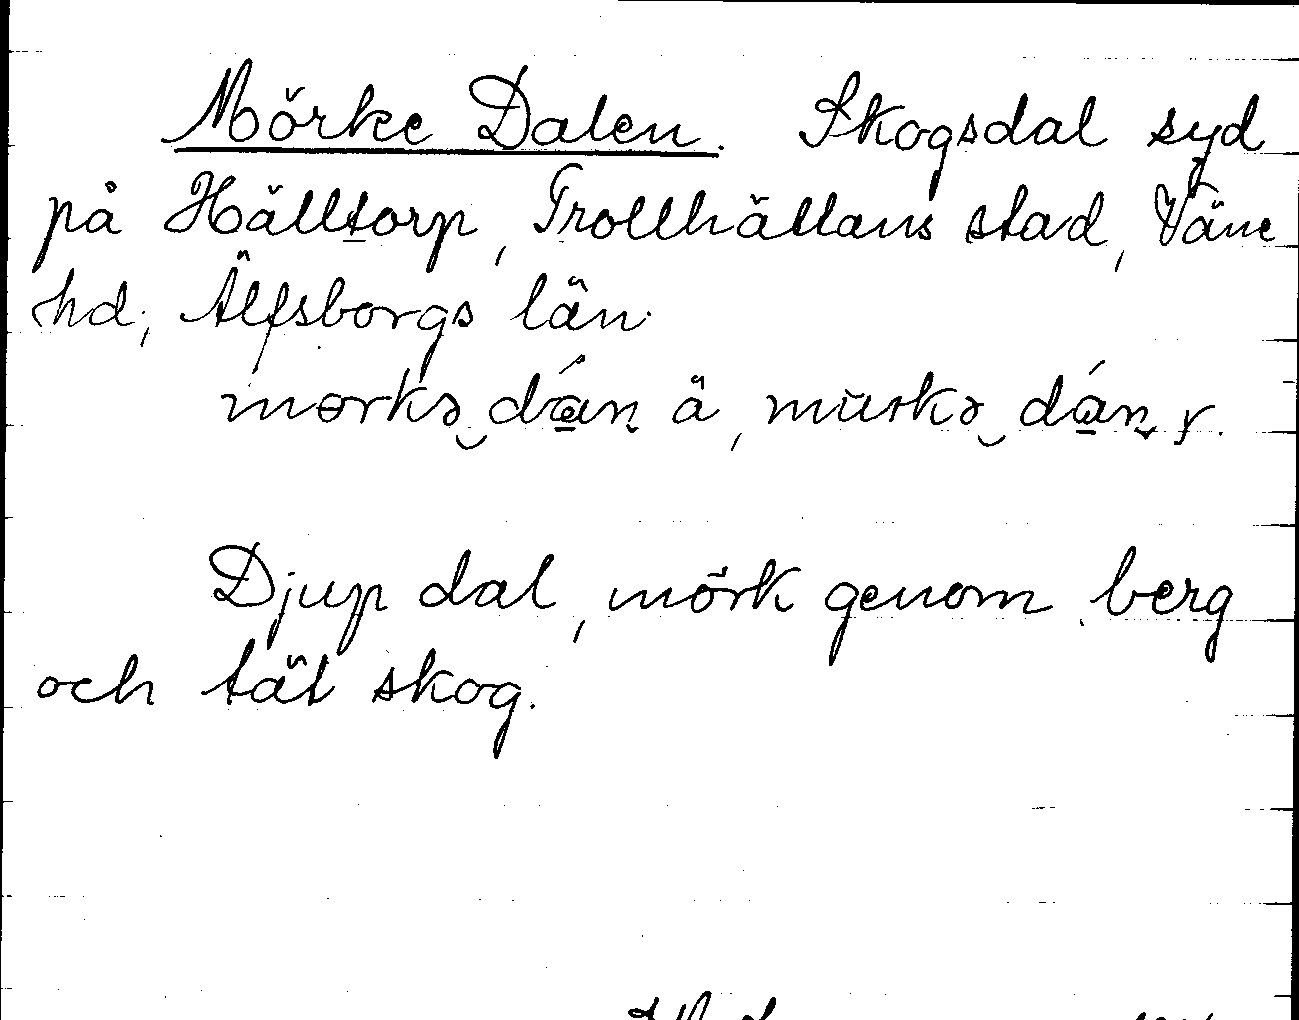 Mörke Dalen. Skogsdal syd
på Hälltorp, Trollhättans stad, Väne
hd, Älfsborgs län.
Djup dal, mörk genom berg
och tät skog.